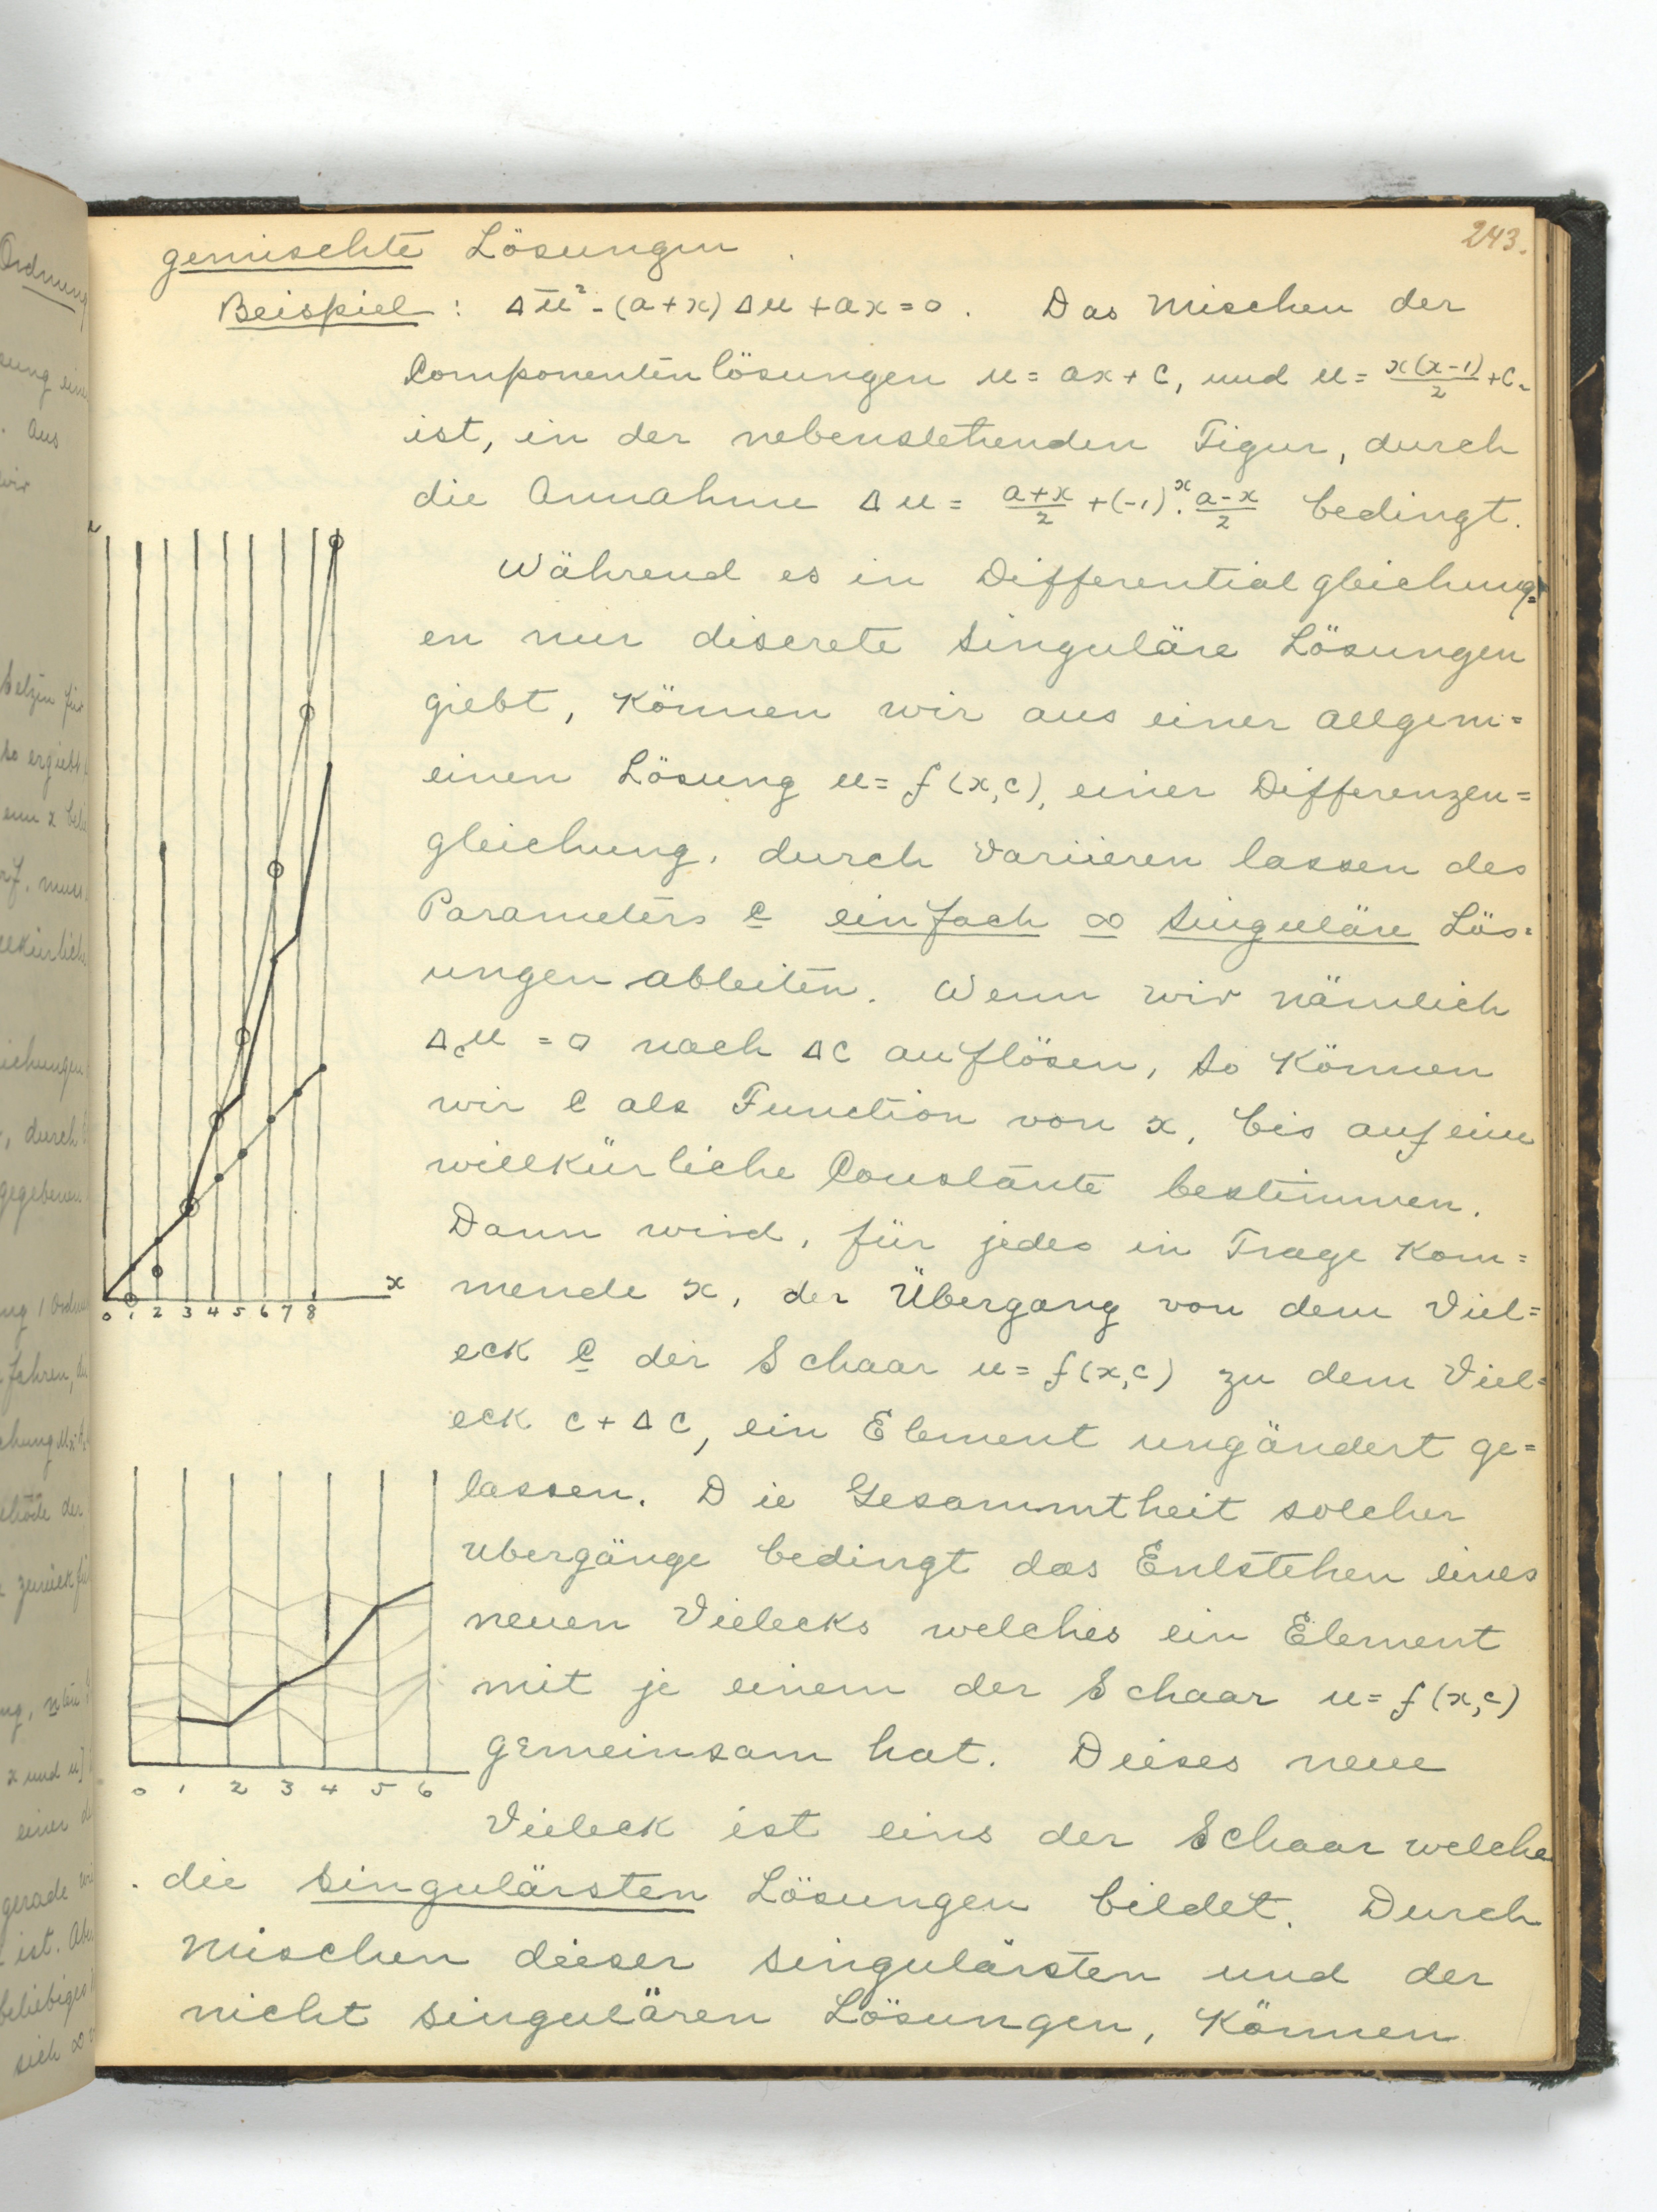 243.
gemischte Lösungen.
Beispiel: Δu² - (a+x) Δu + ax = 0. Das Mischen der
Componentenlösungen u = ax + c, und u = x(x-1)/2 + c.
ist, in der nebenstehenden Figur, durch
die Annahme Δu = (a+x)/2 + (-1)^x · (a-x)/2 bedingt.
Während es in Differentialgleichung=
en nur discrete singuläre Lösungen
giebt, können wir aus einer allgem=
einen Lösung u = f(x,c), einer Differenzen=
gleichung, durch variieren lassen des
Parameters c einfach ∞ singuläre Lös=
ungen ableiten. Wenn wir nämlich
Δ_c u = 0 nach Δc auflösen, so können
wir c als Function von x, bis auf eine
willkürliche Constante bestimmen.
Dann wird, für jedes in Frage kom=
mende x, der Übergang von dem Viel=
eck c der Schaar u = f(x,c) zu dem Viel=
eck c + Δc, ein Element ungändert ge=
lassen. Die Gesammtheit solcher
Ubergänge bedingt das Entstehen eines
neuen Vielecks welches ein Element
mit je einem der Schaar u = f(x,c)
gemeinsam hat. Dieses neue
Vieleck ist eins der Schaar welche
die singulärsten Lösungen bildet. Durch
Mischen dieser singulärsten und der
nicht singulären Lösungen, können
u
x
0 1 2 3 4 5 6 7 8
0 1 2 3 4 5 6
Ordnung
Aus
wir
so ergiebt
durch
gegebenen
gerade
ist. Aber
beliebiges
sich ∞